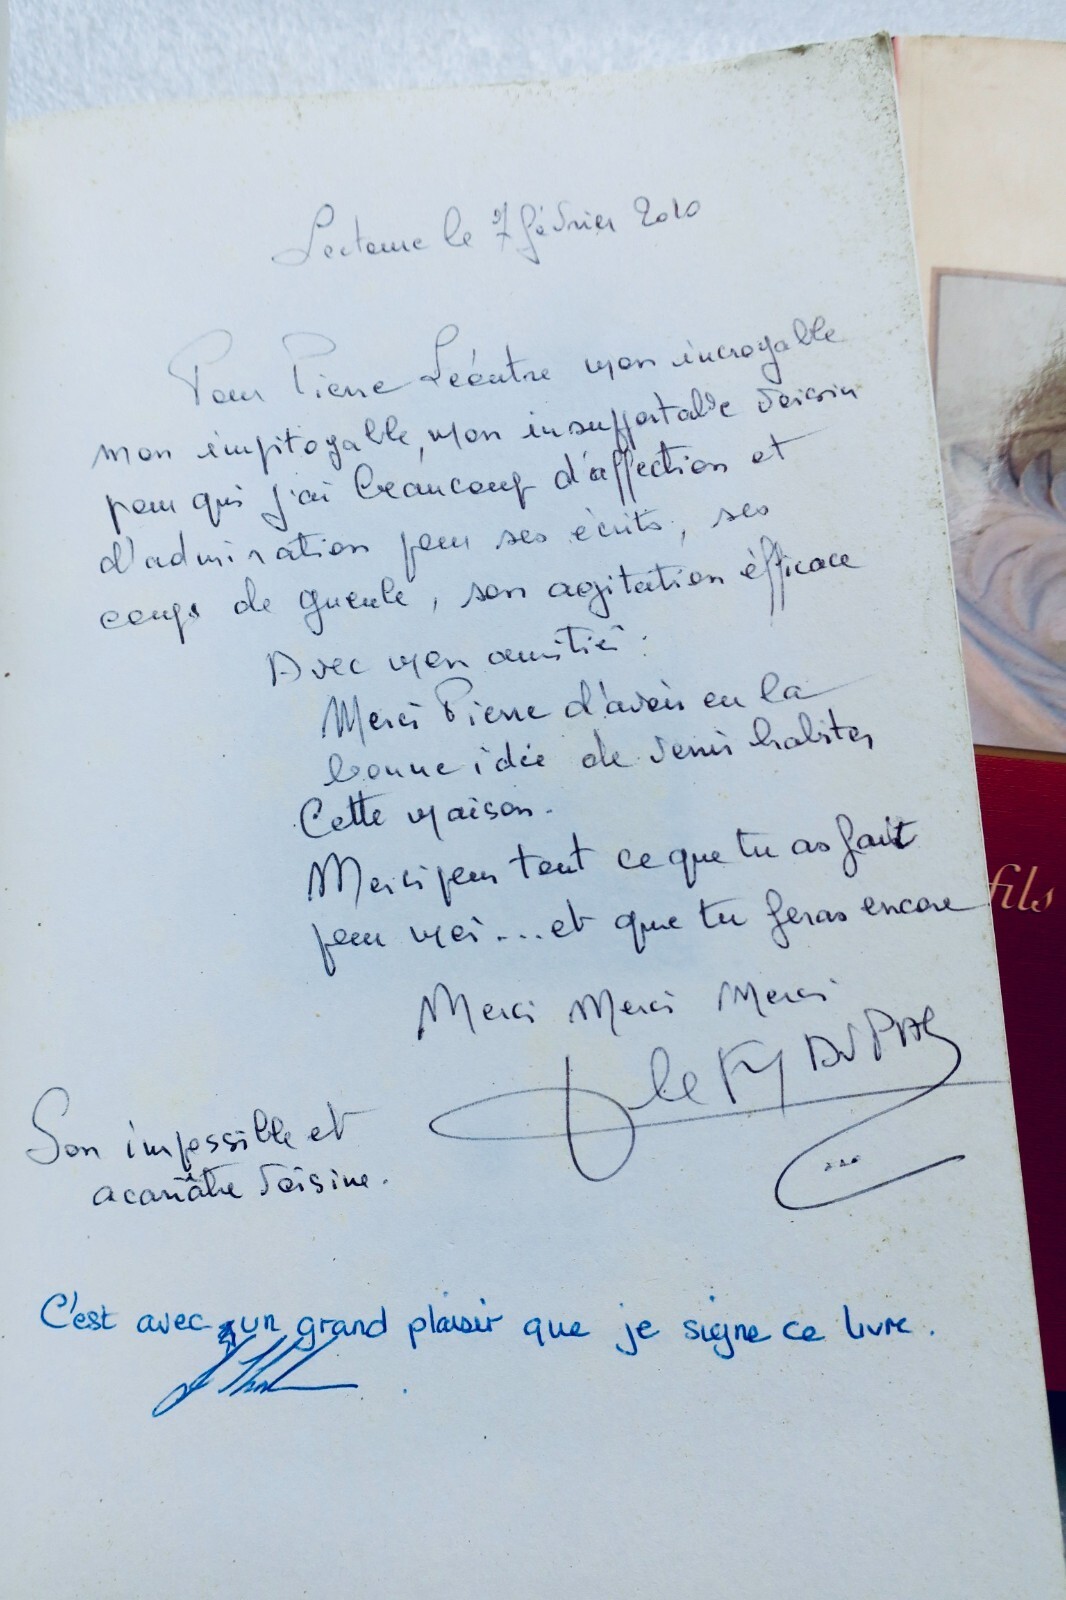 Lectoure le 7 février 2010
Pour Pierre Léoutre mon incroyable
mon impitoyable, mon insupportable voisin
pour qui j'ai beaucoup d'affection et
d'admiration pour ses écrits, ses
coups de gueule, son agitation éfficace
Avec mon amitié.
Merci Pierre d'avoir eu la
bonne idée de venir habiter
Cette maison.
Merci pour tout ce que tu as fait
pour moi....et que tu feras encore
Merci Merci Merci
DUPAC
Son impossible et
acariâtre voisine.
C'est avec un grand plaisir que je signe ce livre.
fils